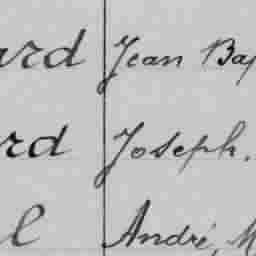 ard Jean Bap
rd Joseph.
l André, M